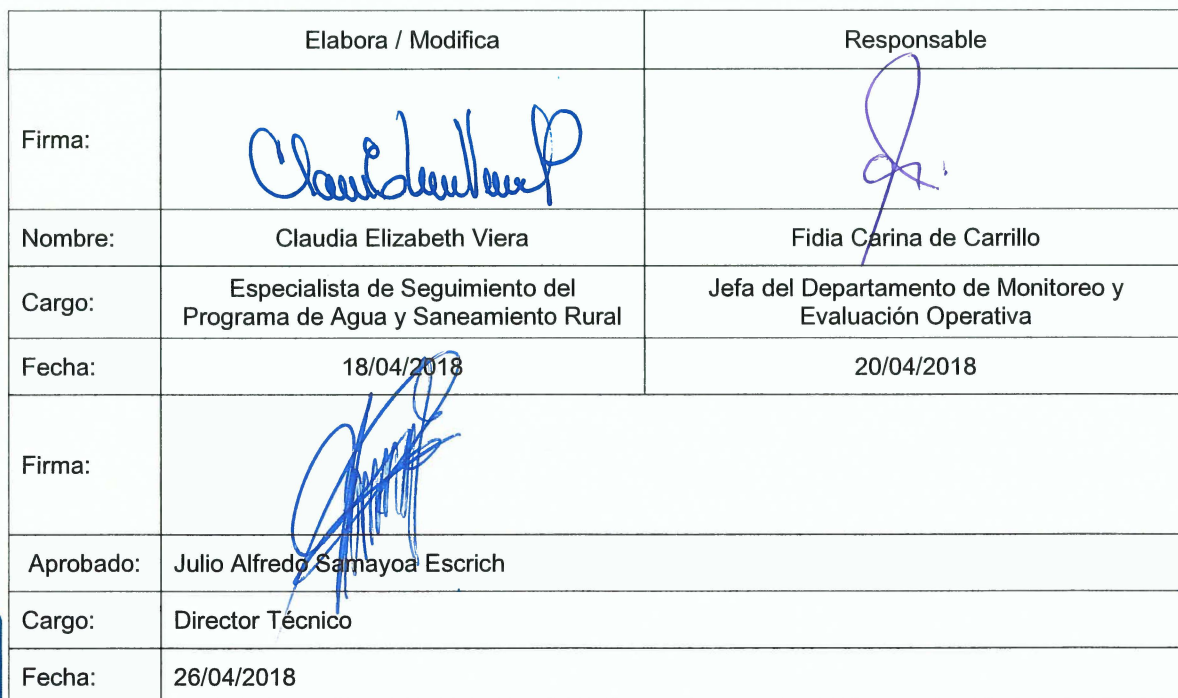 Elabora / Modifica Responsable
Firma:
Nombre: Claudia Elizabeth Viera Fidia Carina de Carrillo
Cargo: Especialista de Seguimiento del Jefa del Departamento de Monitoreo y
Programa de Agua y Saneamiento Rural Evaluación Operativa
Fecha: 18/04/2018 20/04/2018
Firma:
Aprobado: Julio Alfredo Samayoa Escrich
Cargo: Director Técnico
Fecha: 26/04/2018